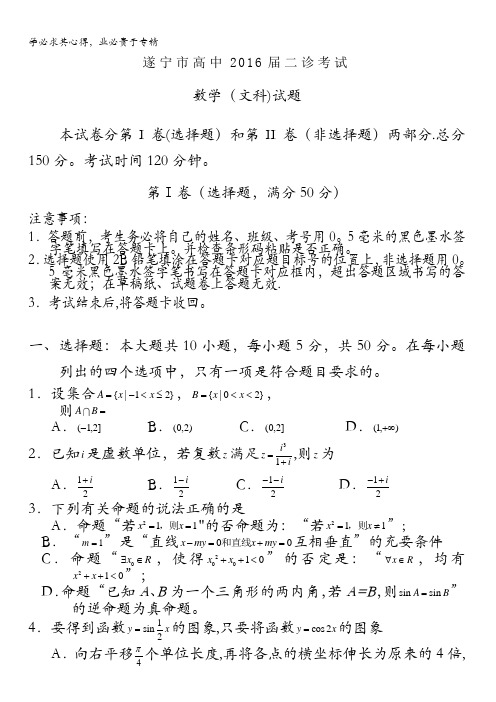 学必求其心得，业必贵于专精
遂宁市高中 2016 届二诊考试
数学（文科)试题
本试卷分第 I 卷(选择题）和第 II 卷（非选择题）两部分.总分
150 分。考试时间 120 分钟。
第 I 卷（选择题，满分 50 分）
注意事项：
1．答题前，考生务必将自己的姓名、班级、考号用 0。5 毫米的黑色墨水签
字笔填写在答题卡上。并检查条形码粘贴是否正确。
2．选择题使用 2B 铅笔填涂在答题卡对应题目标号的位置上，非选择题用 0。
5 毫米黑色墨水签字笔书写在答题卡对应框内，超出答题区域书写的答
案无效；在草稿纸、试题卷上答题无效.
3．考试结束后,将答题卡收回。
一、选择题：本大题共 10 小题，每小题 5 分，共 50 分。在每小题
列出的四个选项中，只有一项是符合题目要求的。
1．设集合 A={x|-1<x≤2}，B={x|0<x<2}，
则 A∩B=
A．(-1,2] B．(0,2) C．(0,2] D．(1,+∞)
2．已知 i 是虚数单位，若复数 z 满足 z=i³/(1+i),则 z 为
A．(1+i)/2 B．(1-i)/2 C．(-1-i)/2 D．(-1+i)/2
3．下列有关命题的说法正确的是
A．命题“若 x²=1，则x=1"的否命题为：“若 x²=1，则x≠1”；
B．“m=1”是“直线 x-my=0和直线x+my=0 互相垂直”的充要条件
C．命题“∃x₀∈R，使得 x₀²+x₀+1<0”的否定是：“∀x∈R，均有
x²+x+1<0”；
D．命题“已知 A、B 为一个三角形的两内角,若 A=B,则 sin A=sin B”
的逆命题为真命题。
4．要得到函数 y=sin 1/2 x 的图象,只要将函数 y=cos 2x 的图象
A．向右平移 π/4 个单位长度,再将各点的横坐标伸长为原来的 4 倍,